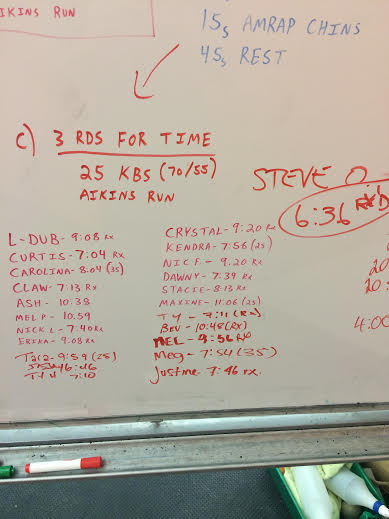 AIKINS RUN
15s AMRAP CHINS
45s REST
C) 3 RDS FOR TIME
25 KBS (70/55)
AIKINS RUN
STEVE O
6:36 RX'D
L-DUB- 9:08 RX
CURTIS- 7:04 RX
CAROLINA- 8:04 (35)
CLAW- 7:13 RX
ASH- 10:38
MEL P- 10:59
NICK L- 7:40 RX
ERIKA- 9:08 RX
9:59 (25)
7:10
CRYSTAL- 9:20 RX
KENDRA- 7:56 (25)
NIC F- 9:20 RX
DAWNY- 7:39 RX
STACIE- 8:13 RX
MAXINE- 11:06 (25)
TY- 7:11 (RX)
BEV- 10:48 (RX)
MEL- 9:56 RX
Meg- 7:54 (35)
Justine- 7:46 RX.
20
20:
4:00